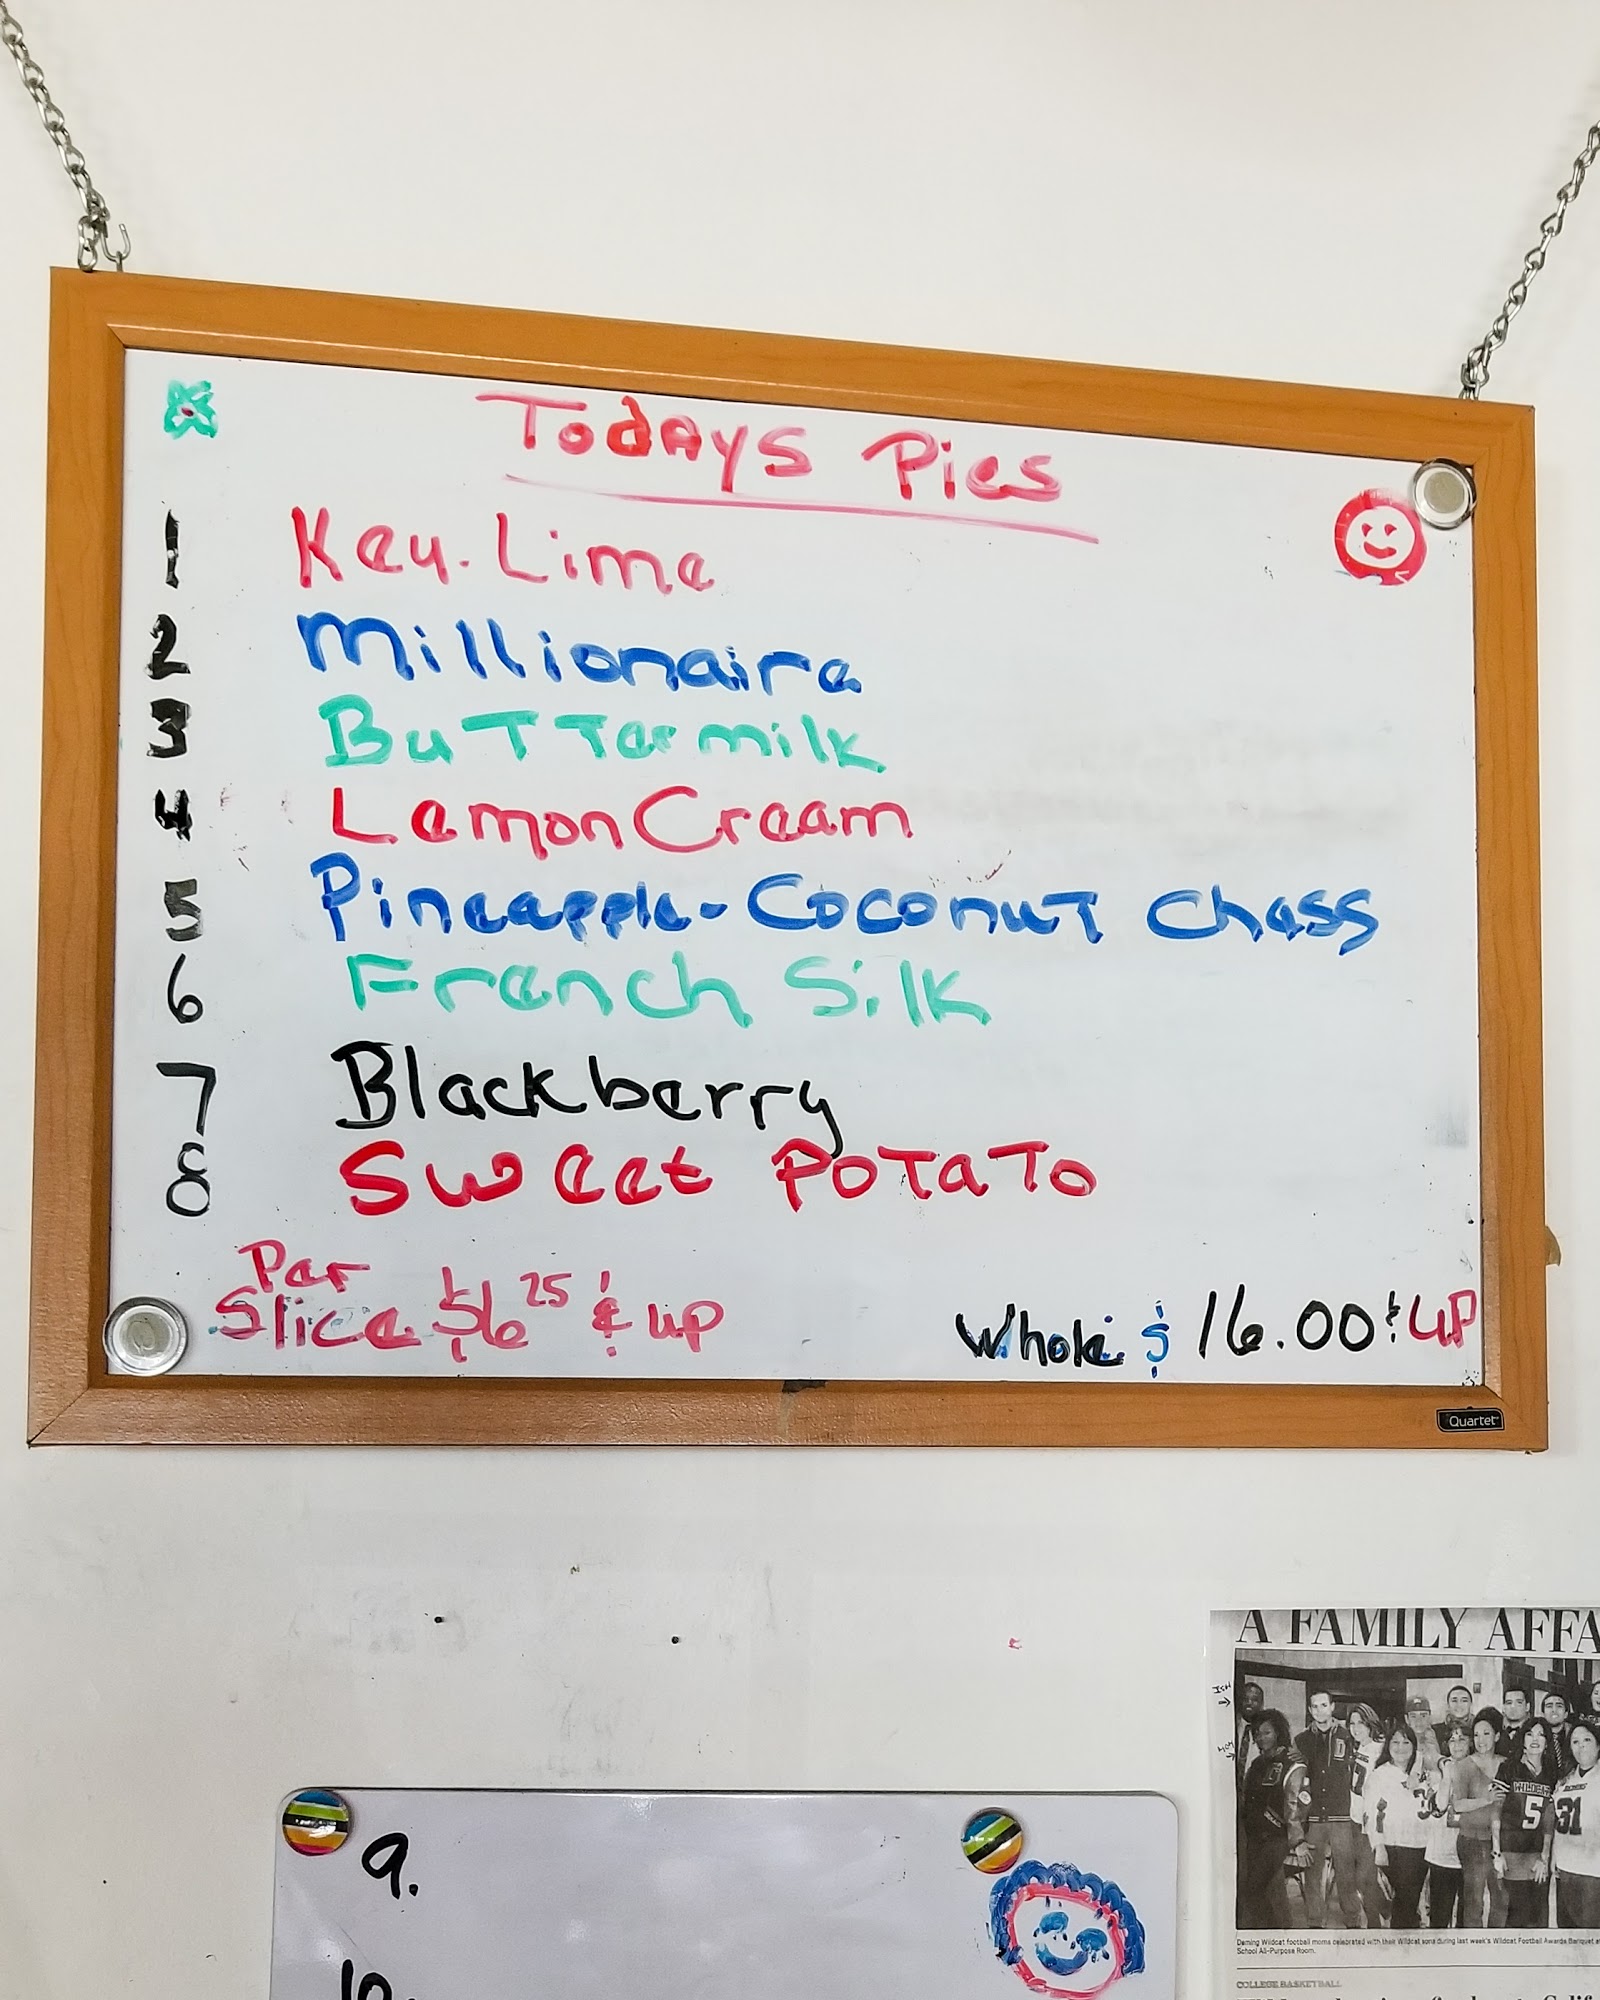 Todays Pies
1 Key-Lime
2 Millionaire
3 Buttermilk
4 Lemon Cream
5 Pineapple-Coconut Chess
6 French Silk
7 Blackberry
8 Sweet Potato
Per
Slice $6 25 & up
Whole $16.00 & up
Quartet
9.
10.
A FAMILY AFFA
Deming Wildcat football moms celebrated with their Wildcat sons during last week's Wildcat Football Awards Banquet
School All-Purpose Room.
COLLEGE BASKETBALL